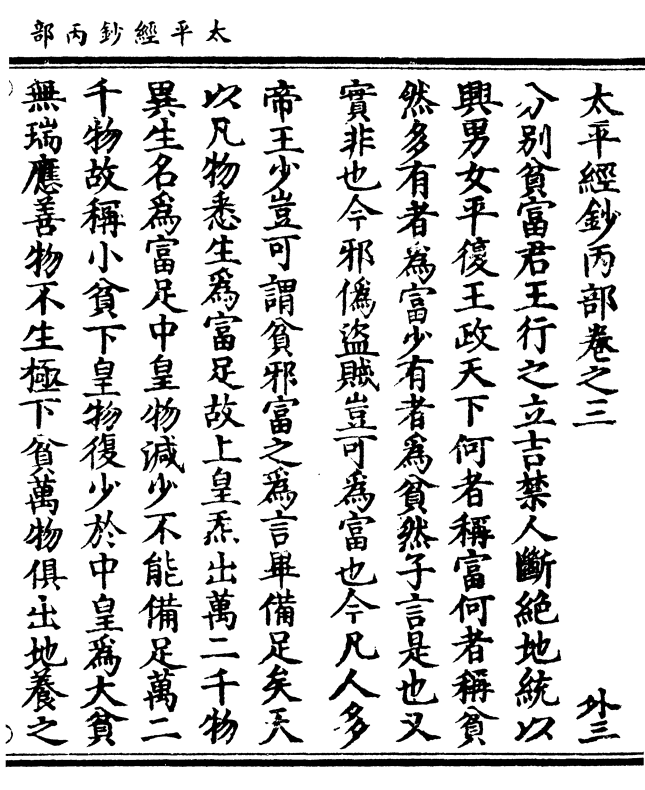 太平經鈔丙部
太平經鈔丙部卷之三　外三
分別貧富君王行之立吉禁人斷絕地統以
興男女平復王政天下何者稱富何者稱貧
然多有者為富少有者為貧然子言是也又
實非也今邪偽盜賊豈可為富也今凡人多
帝王少豈可謂貧邪富之為言畢備足矣天
以凡物悉生為富足故上皇炁出萬二千物
異生名為富足中皇物減少不能備足萬二
千物故稱小貧下皇物復少於中皇為大貧
無瑞應善物不生極下貧萬物俱出地養之